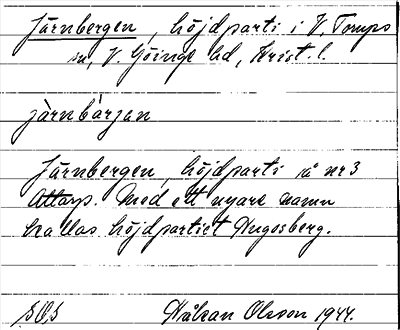 Järnbergen, höjdparti i V. Torups
sn, V. Göinge hd, Krist. l.
jàrnbárjan
Järnbergen, höjdparti på nr 3
Attarp. Med ett nyare namn
kallas höjdpartiet Hugosberg.
SOS Håkan Olsson 1944.